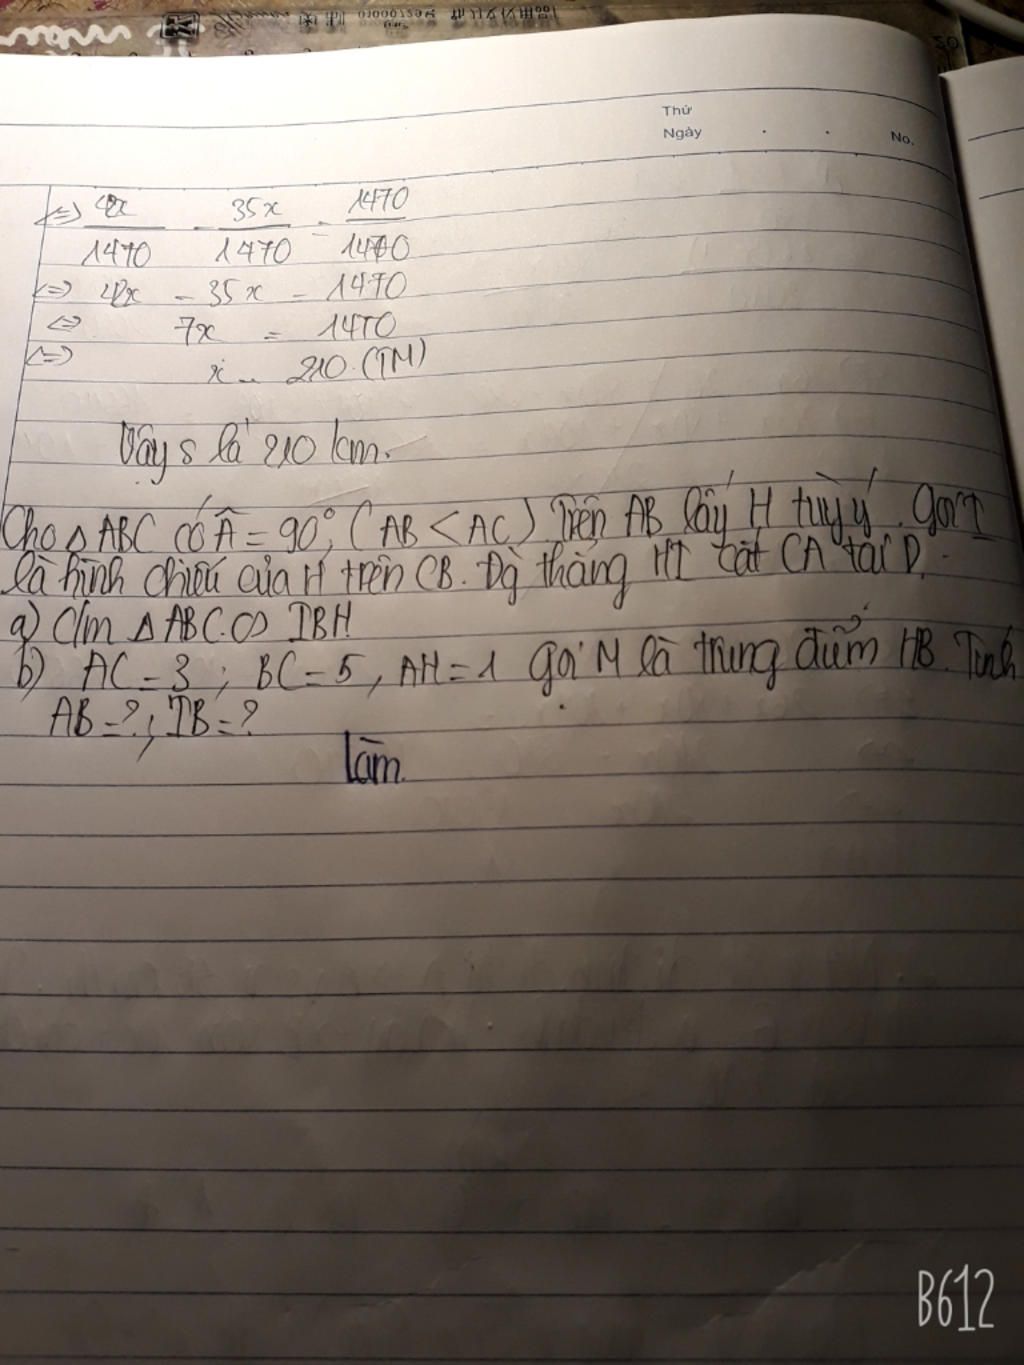 Thứ
Ngày . . No.
⇔ 42x/1470 - 35x/1470 = 1470/1470
⇔ 42x - 35x = 1470
⇔ 7x = 1470
⇔ x = 210 (TM)
Vậy s là 210 km.
Cho △ABC có Â = 90°, (AB < AC) Trên AB lấy H tuỳ ý. Gọi I
là hình chiếu của H trên CB. Đg thẳng HI cắt CA tại D.
a) C/m △ABC ∽ IBH
b) AC = 3 ; BC = 5, AH = 1 Gọi M là trung điểm HB. Tính
AB = ? ; IB = ?
làm.
B612